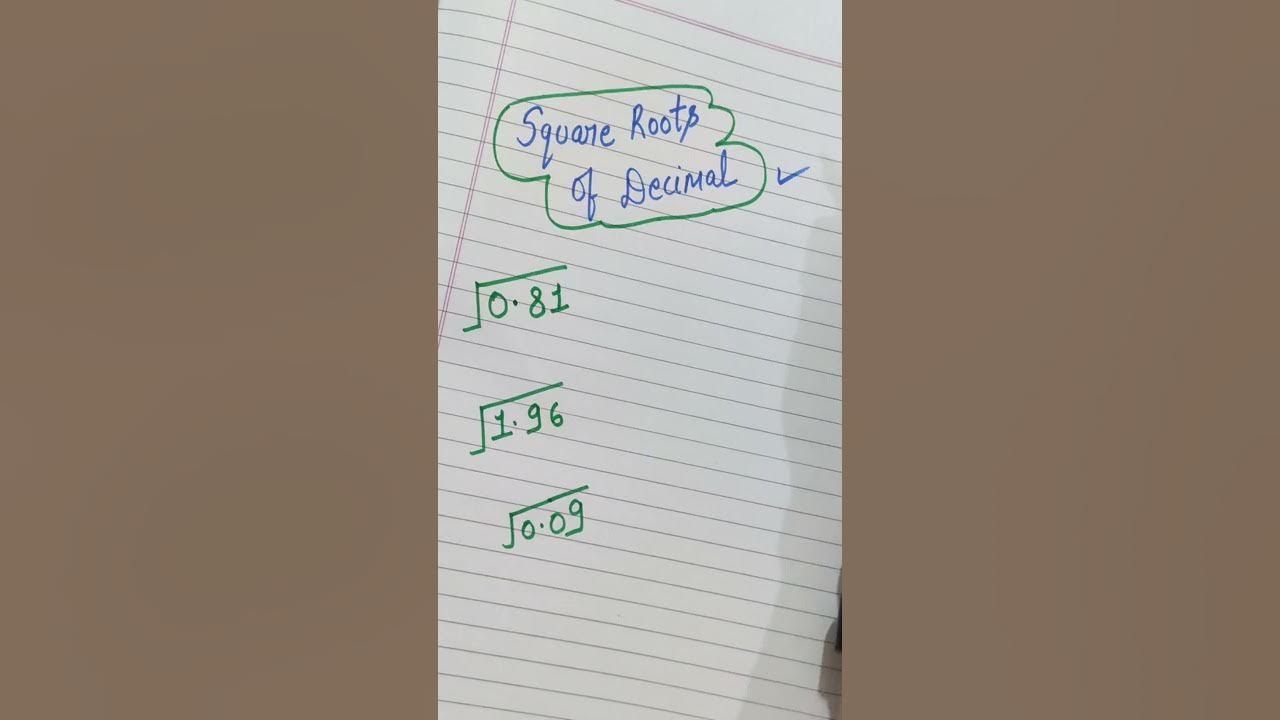 Square Roots
of Decimal
√0.81
√1.96
√0.09